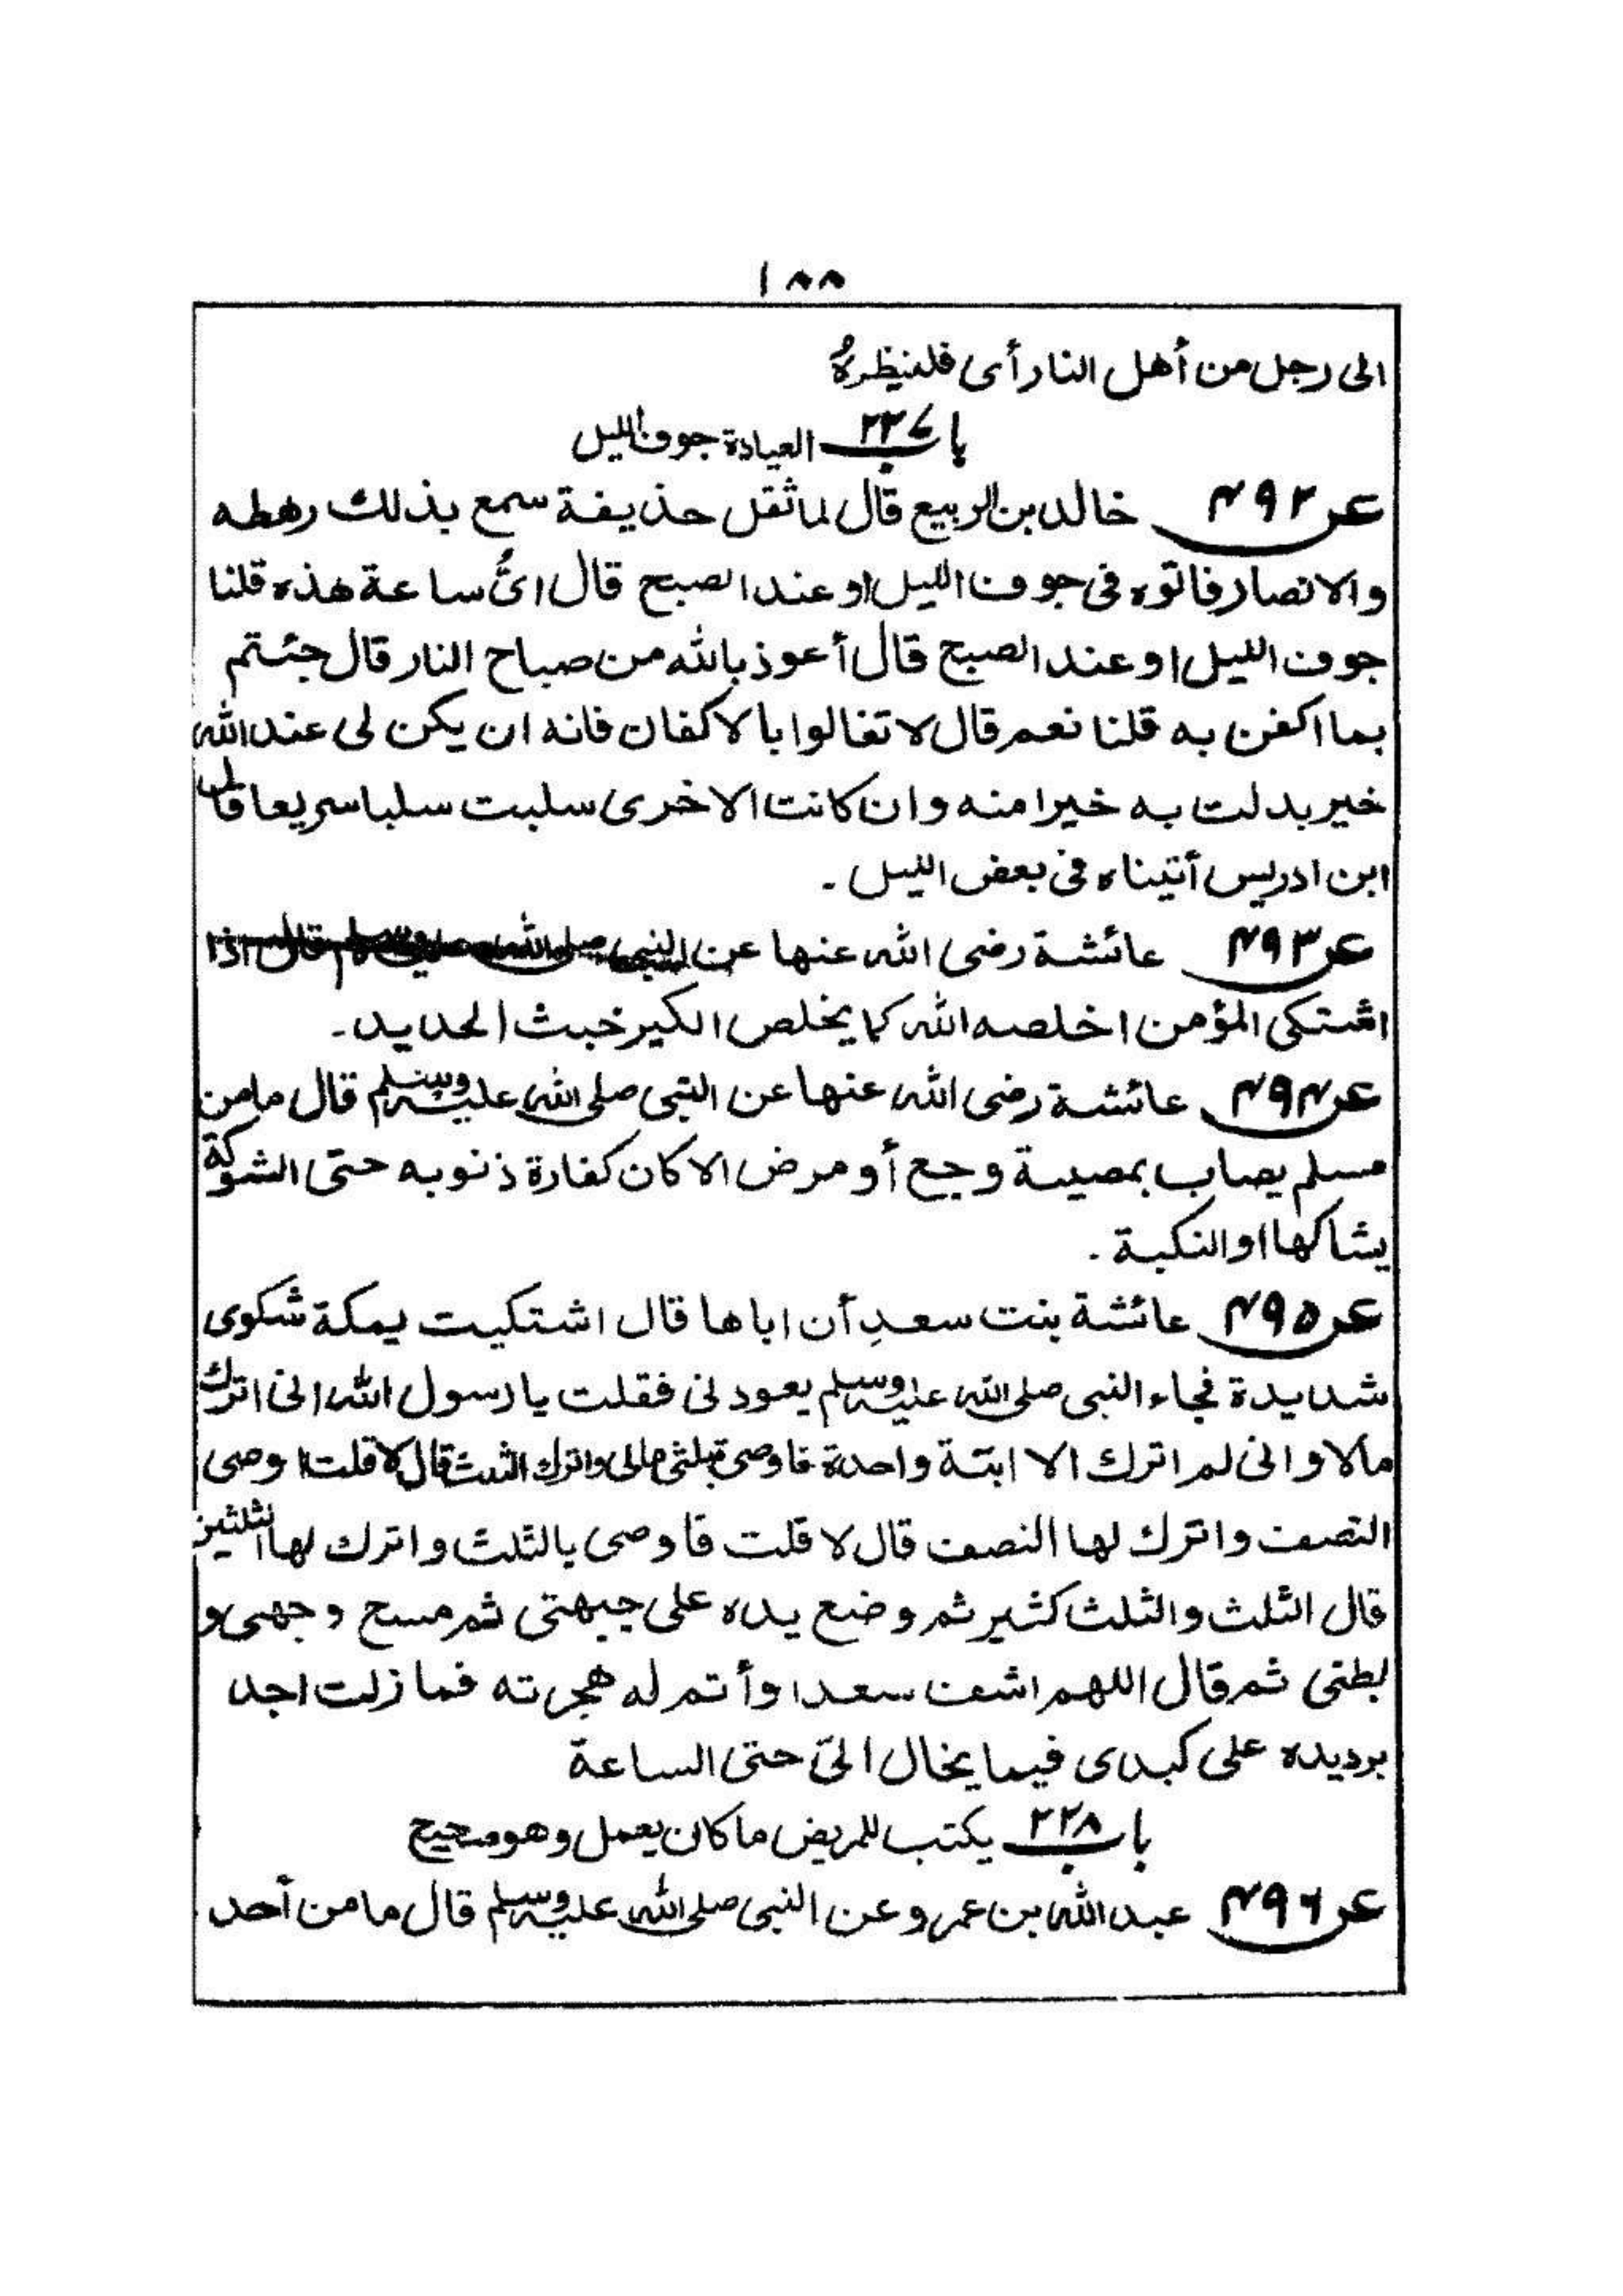 ١٨٨
الى رجل من أهل النار أى فلينظره
باب ٢٢٧ العيادة جوف الليل
عن ٤٩٢ خالد بن الربيع قال لما ثقل حذيفة سمع بذلك رهطه
والانصار فاتوه فى جوف الليل او عند الصبح قال اىُّ ساعة هذه قلنا
جوف الليل او عند الصبح قال أعوذ بالله من صباح النار قال جئتم
بما اكفن به قلنا نعم قال لا تغالوا بالاكفان فانه ان يكن لى عند الله
خير بدلت به خيرا منه وان كانت الاخرى سلبت سلبا سريعا قال
ابن ادريس أتيناه فى بعض الليل .
عن ٤٩٣ عائشة رضى الله عنها عن النبى صلى الله عليه وسلم قال اذا
اشتكى المؤمن اخلصه الله كما يخلص الكير خبث الحديد .
عن ٤٩٤ عائشة رضى الله عنها عن النبى صلى الله عليه وسلم قال ما من
مسلم يصاب بمصيبة وجع أو مرض الا كان كفارة ذنوبه حتى الشوكة
يشاكها او النكبة .
عن ٤٩٥ عائشة بنت سعدِ أن اباها قال اشتكيت بمكة شكوى
شديدة فجاء النبى صلى الله عليه وسلم يعودنى فقلت يا رسول الله انى اترك
مالا وانى لم اترك الا ابنة واحدة فاوصى بثلثى مالى واترك الثلث قال لا قلت اوصى
النصف واترك لها النصف قال لا قلت فاوصى بالثلث واترك لها الثلثين
قال الثلث والثلث كثير ثم وضع يده على جبهتى ثم مسح وجهى و
بطنى ثم قال اللهم اشف سعدا وأتم له هجرته فما زلت اجد
برد يده على كبدى فيما يخال الىّ حتى الساعة
باب ٢٢٨ يكتب للمريض ما كان يعمل وهو صحيح
عن ٤٩٦ عبد الله بن عمرو عن النبى صلى الله عليه وسلم قال ما من أحد